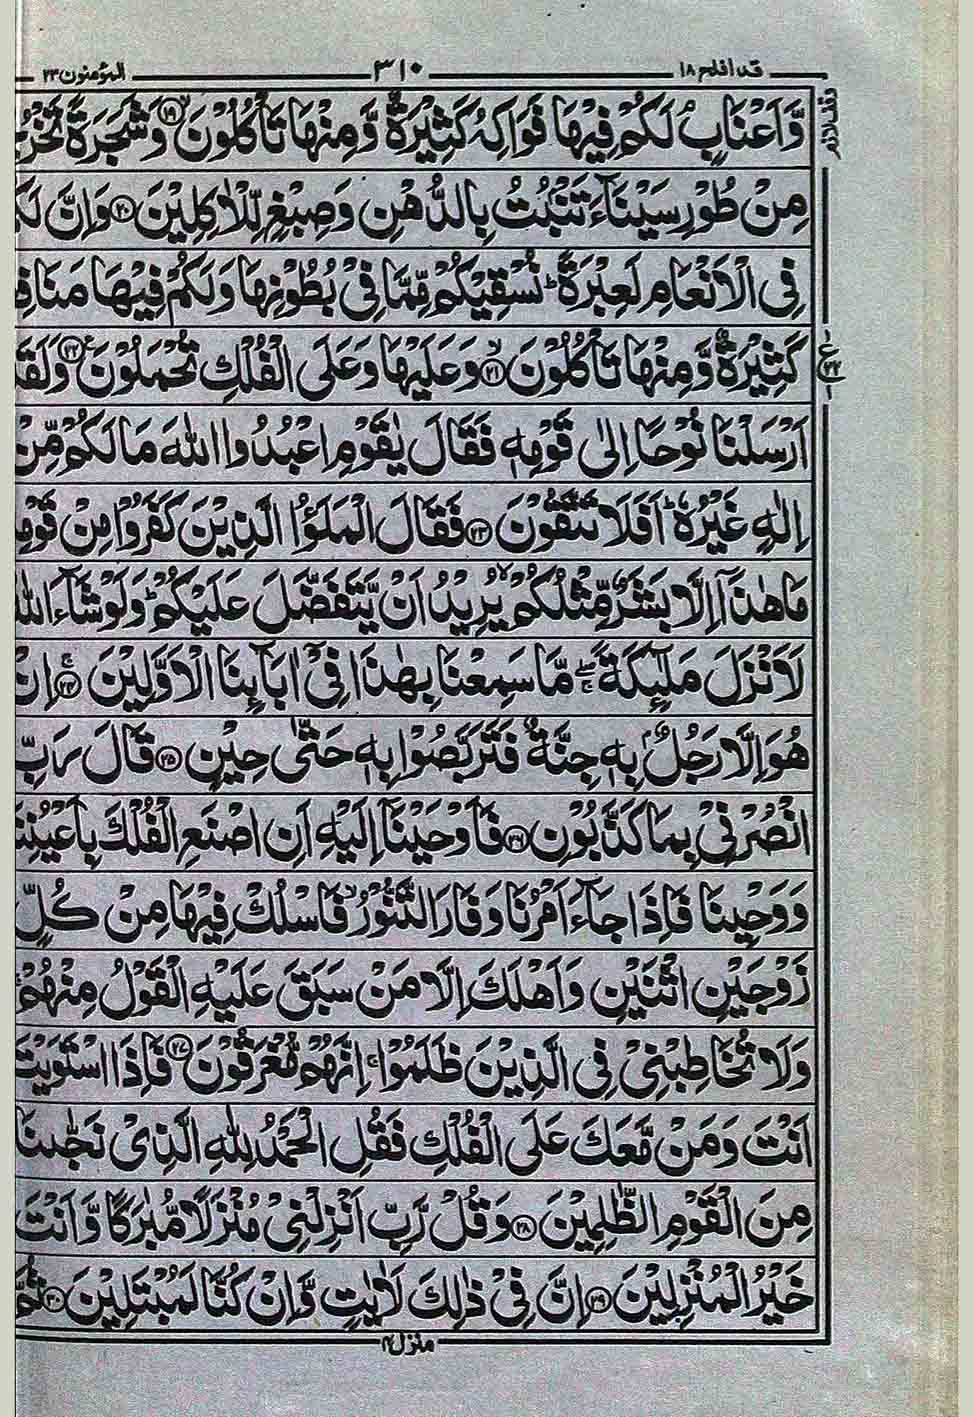 قد افلح ۱۸
۳۱۰
المؤمنون ۲۳
وَّاَعْنَابٍ ۘ لَكُمْ فِيْهَا فَوَاكِهُ كَثِيْرَةٌ وَّمِنْهَا تَاْكُلُوْنَ ۙ‏﴿۱۹﴾ وَشَجَرَةً
مِنْ طُوْرِ سَيْنَآءَ تَنْۢبُتُ بِالدُّهْنِ وَصِبْغٍ لِّلْاٰكِلِيْنَ ﴿۲۰﴾ وَاِنَّ
فِى الْاَنْعَامِ لَعِبْرَةً ؕ نُسْقِيْكُمْ مِّمَّا فِىْ بُطُوْنِهَا وَلَكُمْ فِيْهَا
كَثِيْرَةٌ وَّمِنْهَا تَاْكُلُوْنَ ۙ‏﴿۲۱﴾ وَعَلَيْهَا وَعَلَى الْفُلْكِ تُحْمَلُوْنَ ﴿۲۲﴾
ع
۲۲
اَرْسَلْنَا نُوْحًا اِلٰى قَوْمِهٖ فَقَالَ يٰقَوْمِ اعْبُدُوا اللّٰهَ مَا لَكُمْ مِّنْ
اِلٰهٍ غَيْرُهٗ ؕ اَفَلَا تَتَّقُوْنَ ﴿۲۳﴾ فَقَالَ الْمَلَؤُا الَّذِيْنَ كَفَرُوْا مِنْ
مَا هٰذَاۤ اِلَّا بَشَرٌ مِّثْلُكُمْ ۙ يُرِيْدُ اَنْ يَّتَفَضَّلَ عَلَيْكُمْ ؕ وَلَوْ شَآءَ اللّٰهُ
لَاَنْزَلَ مَلٰٓئِكَةً ۖۚ مَّا سَمِعْنَا بِهٰذَا فِىْۤ اٰبَآئِنَا الْاَوَّلِيْنَ ۚ‏﴿۲۴﴾ اِنْ
هُوَ اِلَّا رَجُلٌۢ بِهٖ جِنَّةٌ فَتَرَبَّصُوْا بِهٖ حَتّٰى حِيْنٍ ﴿۲۵﴾ قَالَ رَبِّ
انْصُرْنِىْ بِمَا كَذَّبُوْنِ ﴿۲۶﴾ فَاَوْحَيْنَاۤ اِلَيْهِ اَنِ اصْنَعِ الْفُلْكَ بِاَعْيُنِنَا
وَوَحْيِنَا فَاِذَا جَآءَ اَمْرُنَا وَفَارَ التَّنُّوْرُ ۙ فَاسْلُكْ فِيْهَا مِنْ كُلٍّ
زَوْجَيْنِ اثْنَيْنِ وَاَهْلَكَ اِلَّا مَنْ سَبَقَ عَلَيْهِ الْقَوْلُ مِنْهُمْ ۚ
وَلَا تُخَاطِبْنِىْ فِى الَّذِيْنَ ظَلَمُوْا ۚ اِنَّهُمْ مُّغْرَقُوْنَ ﴿۲۷﴾ فَاِذَا اسْتَوَيْتَ
اَنْتَ وَمَنْ مَّعَكَ عَلَى الْفُلْكِ فَقُلِ الْحَمْدُ لِلّٰهِ الَّذِىْ نَجّٰىنَا
مِنَ الْقَوْمِ الظّٰلِمِيْنَ ﴿۲۸﴾ وَقُلْ رَّبِّ اَنْزِلْنِىْ مُنْزَلًا مُّبٰرَكًا وَّاَنْتَ
خَيْرُ الْمُنْزِلِيْنَ ﴿۲۹﴾ اِنَّ فِىْ ذٰلِكَ لَاٰيٰتٍ وَّاِنْ كُنَّا لَمُبْتَلِيْنَ ﴿۳۰﴾ ثُمَّ
منزل۴